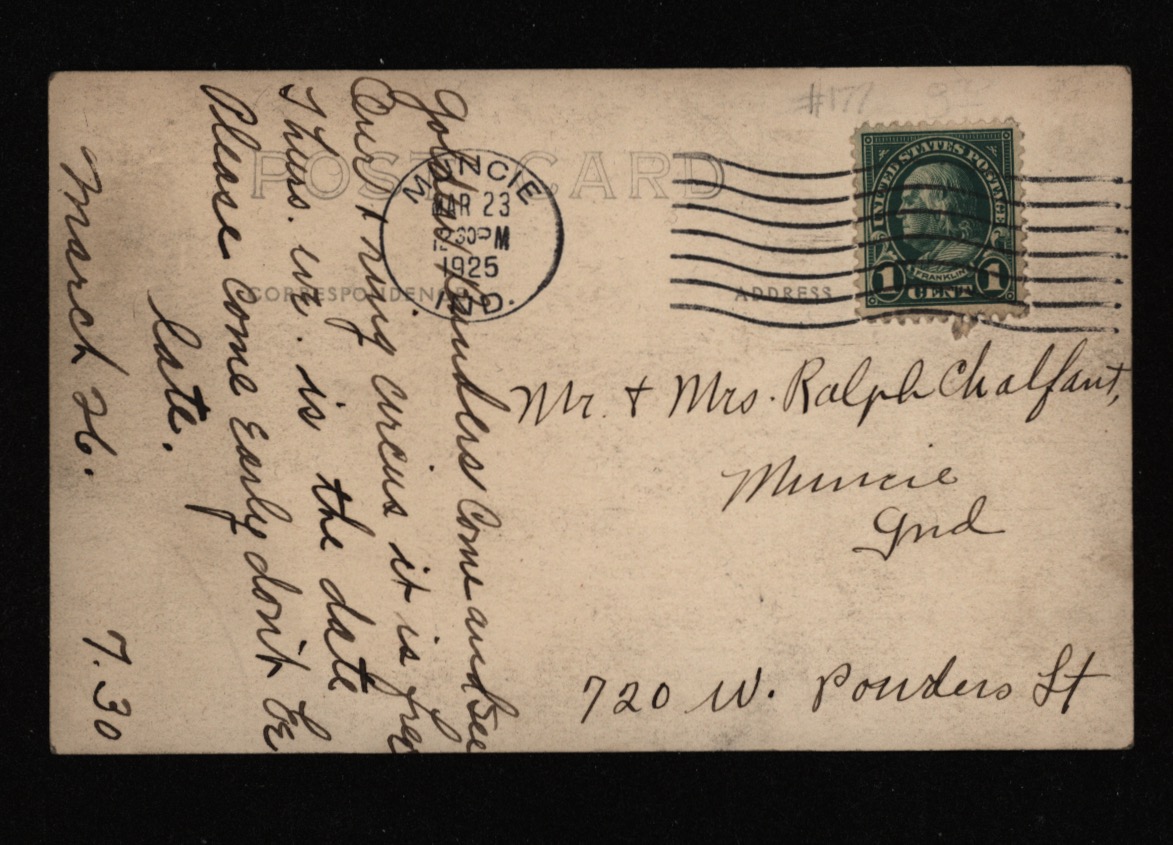 #177
POST CARD
MUNCIE
MAR 23
1230PM
1925
IND.
UNITED STATES POSTAGE
FRANKLIN
1 CENT 1
CORRESPONDENCE
ADDRESS
Come and see
Our 1 ring circus it is free
Thurs. eve. is the date
Please Come Early don't be
late.
March 26. 7.30
Mr. & Mrs. Ralph Chalfant,
Muncie
Ind
720 W. Powders St